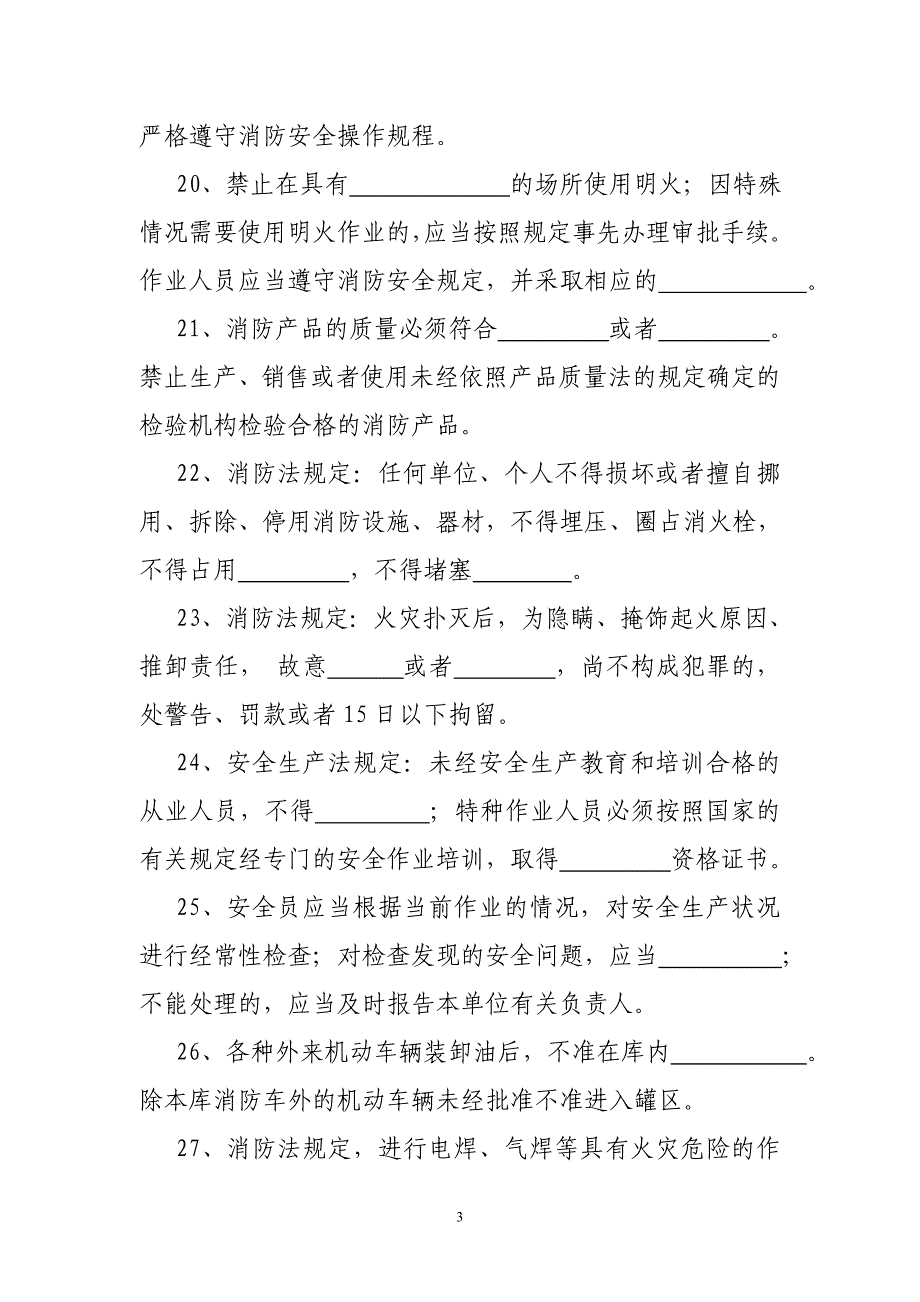 严格遵守消防安全操作规程。
20、禁止在具有_____________的场所使用明火；因特殊
情况需要使用明火作业的，应当按照规定事先办理审批手续。
作业人员应当遵守消防安全规定，并采取相应的____________。
21、消防产品的质量必须符合_________或者_________。
禁止生产、销售或者使用未经依照产品质量法的规定确定的
检验机构检验合格的消防产品。
22、消防法规定：任何单位、个人不得损坏或者擅自挪
用、拆除、停用消防设施、器材，不得埋压、圈占消火栓，
不得占用_________，不得堵塞________。
23、消防法规定：火灾扑灭后，为隐瞒、掩饰起火原因、
推卸责任， 故意______或者________，尚不构成犯罪的，
处警告、罚款或者15日以下拘留。
24、安全生产法规定：未经安全生产教育和培训合格的
从业人员，不得_________；特种作业人员必须按照国家的
有关规定经专门的安全作业培训，取得_________资格证书。
25、安全员应当根据当前作业的情况，对安全生产状况
进行经常性检查；对检查发现的安全问题，应当__________；
不能处理的，应当及时报告本单位有关负责人。
26、各种外来机动车辆装卸油后，不准在库内___________。
除本库消防车外的机动车辆未经批准不准进入罐区。
27、消防法规定，进行电焊、气焊等具有火灾危险的作
3